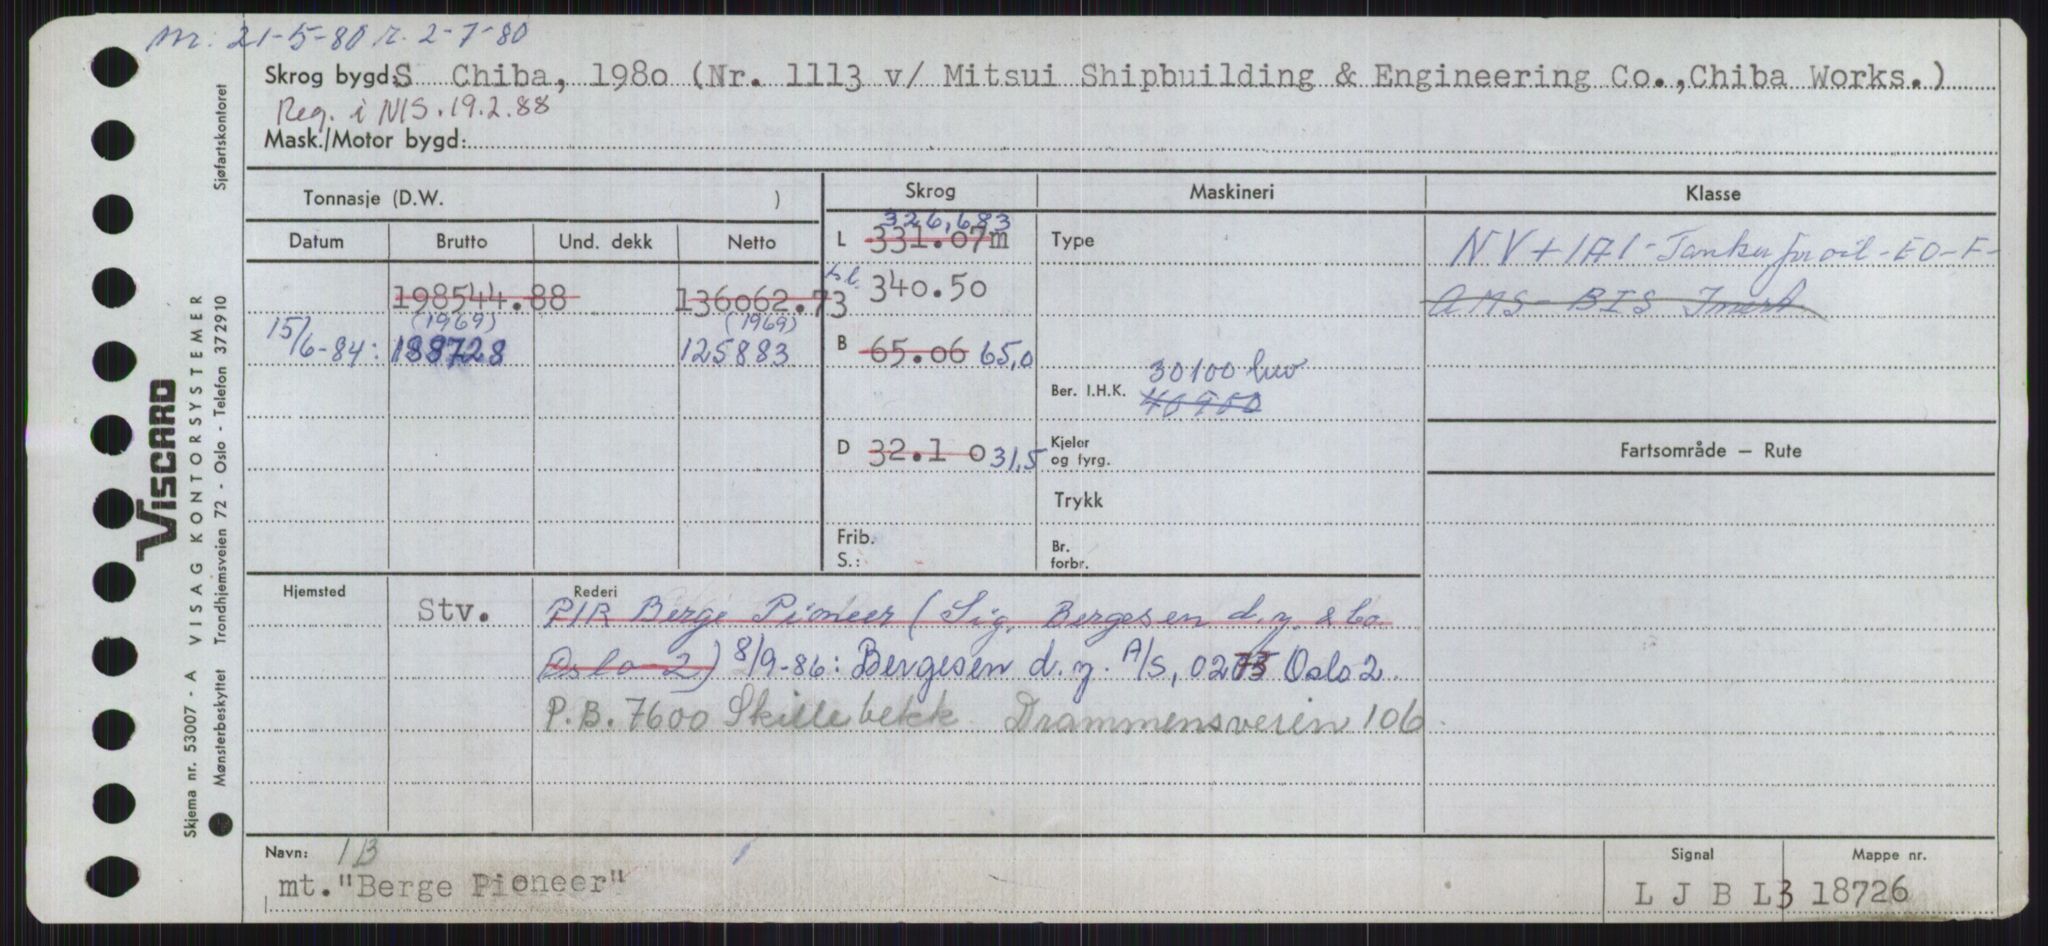 m. 21-5-80 r. 2-7-80
Skrog bygd: S Chiba, 1980 (Nr. 1113 v/ Mitsui Shipbuilding & Engineering Co.,Chiba Works.)
Reg. i NIS. 19.2.88
Mask./Motor bygd:
Tonnasje (D.W. )
Skrog
Maskineri
Klasse
Datum
Brutto
Und. dekk
Netto
198544.88
136062.73
(1969)
(1969)
15/6-84: 188728
125883
326,683
L 331.07m
340.50
B 65.06 65,0
D 32.1 0 31,5
Frib.
S.:
Type
30100
Ber. I.H.K. 40900
Kjeler
og fyrg.
Trykk
Br.
forbr.
NV + 1A1 - Tanker for oil - EO - F -
AMS - BIS Inert
Fartsområde — Rute
Hjemsted
Stv.
Rederi
P/R Berge Pioneer (Sig. Bergesen d.y. & Co.
Oslo 2) 8/9-86: Bergesen d.y. A/S, Oslo 2.
P.B. 7600 Skillebekk Drammensveien 106
Navn: 1B
mt. "Berge Pioneer"
Signal
L J B L3
Mappe nr.
18726
VISCARD
Skjema nr. 53007 - A VISAG KONTORSYSTEMER
Mønsterbeskyttet Trondhjemsveien 72 - Oslo - Telefon 372910 Sjøfartskontoret